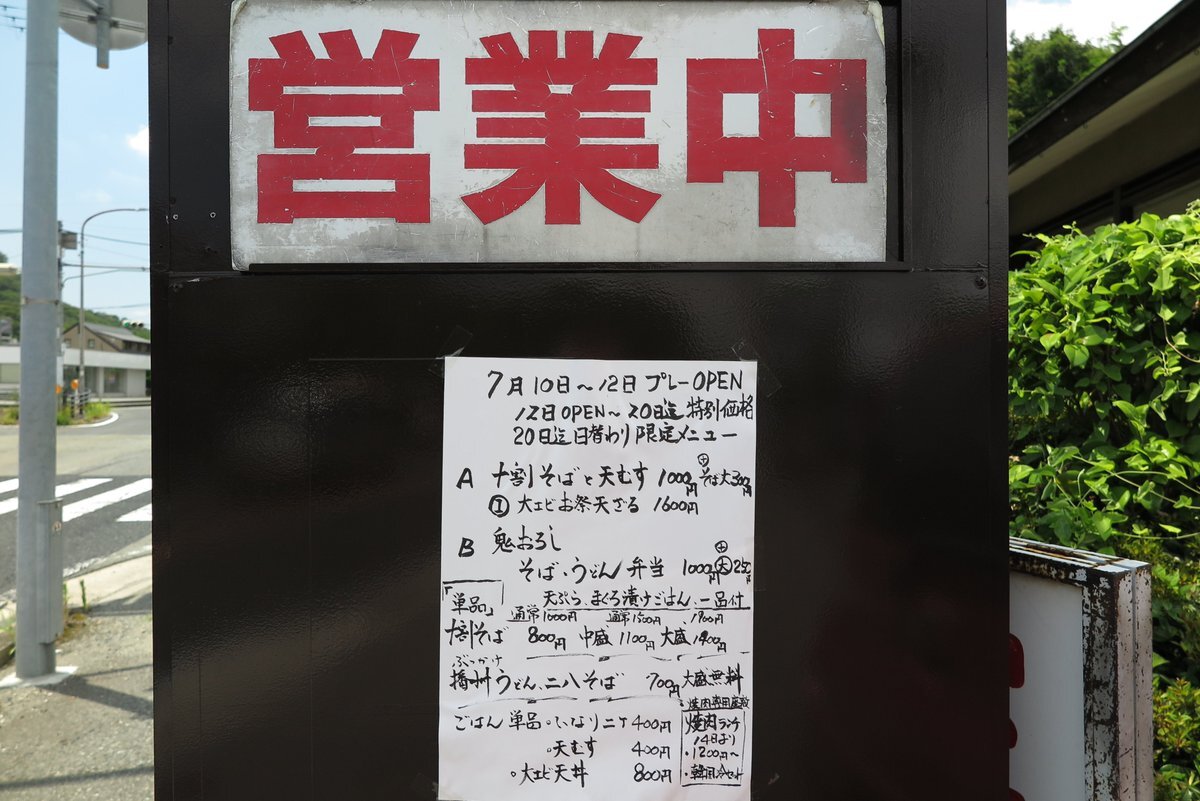 営業中
7月10日~12日 プレーOPEN
12日OPEN~20日迄 特別価格
20日迄日替わり限定メニュー
A 十割そばと天むす 1000円 ⊕そば大300円
① 大エビお祭天ざる 1600円
B 鬼おろし
そば、うどん弁当 1000円 ⊕大250円
天ぷら、まぐろ漬けごはん、一品付
「単品」 通常1000円 通常1500円 1900円
十割そば 800円 中盛1100円 大盛1400円
ぶっかけ
播州うどん、二八そば 700円 大盛無料
ごはん単品・いなり二ケ 400円
・天むす 400円
・大エビ天丼 800円
焼肉専用座敷
焼肉ランチ
14日より
・1200円~
・韓国冷セット